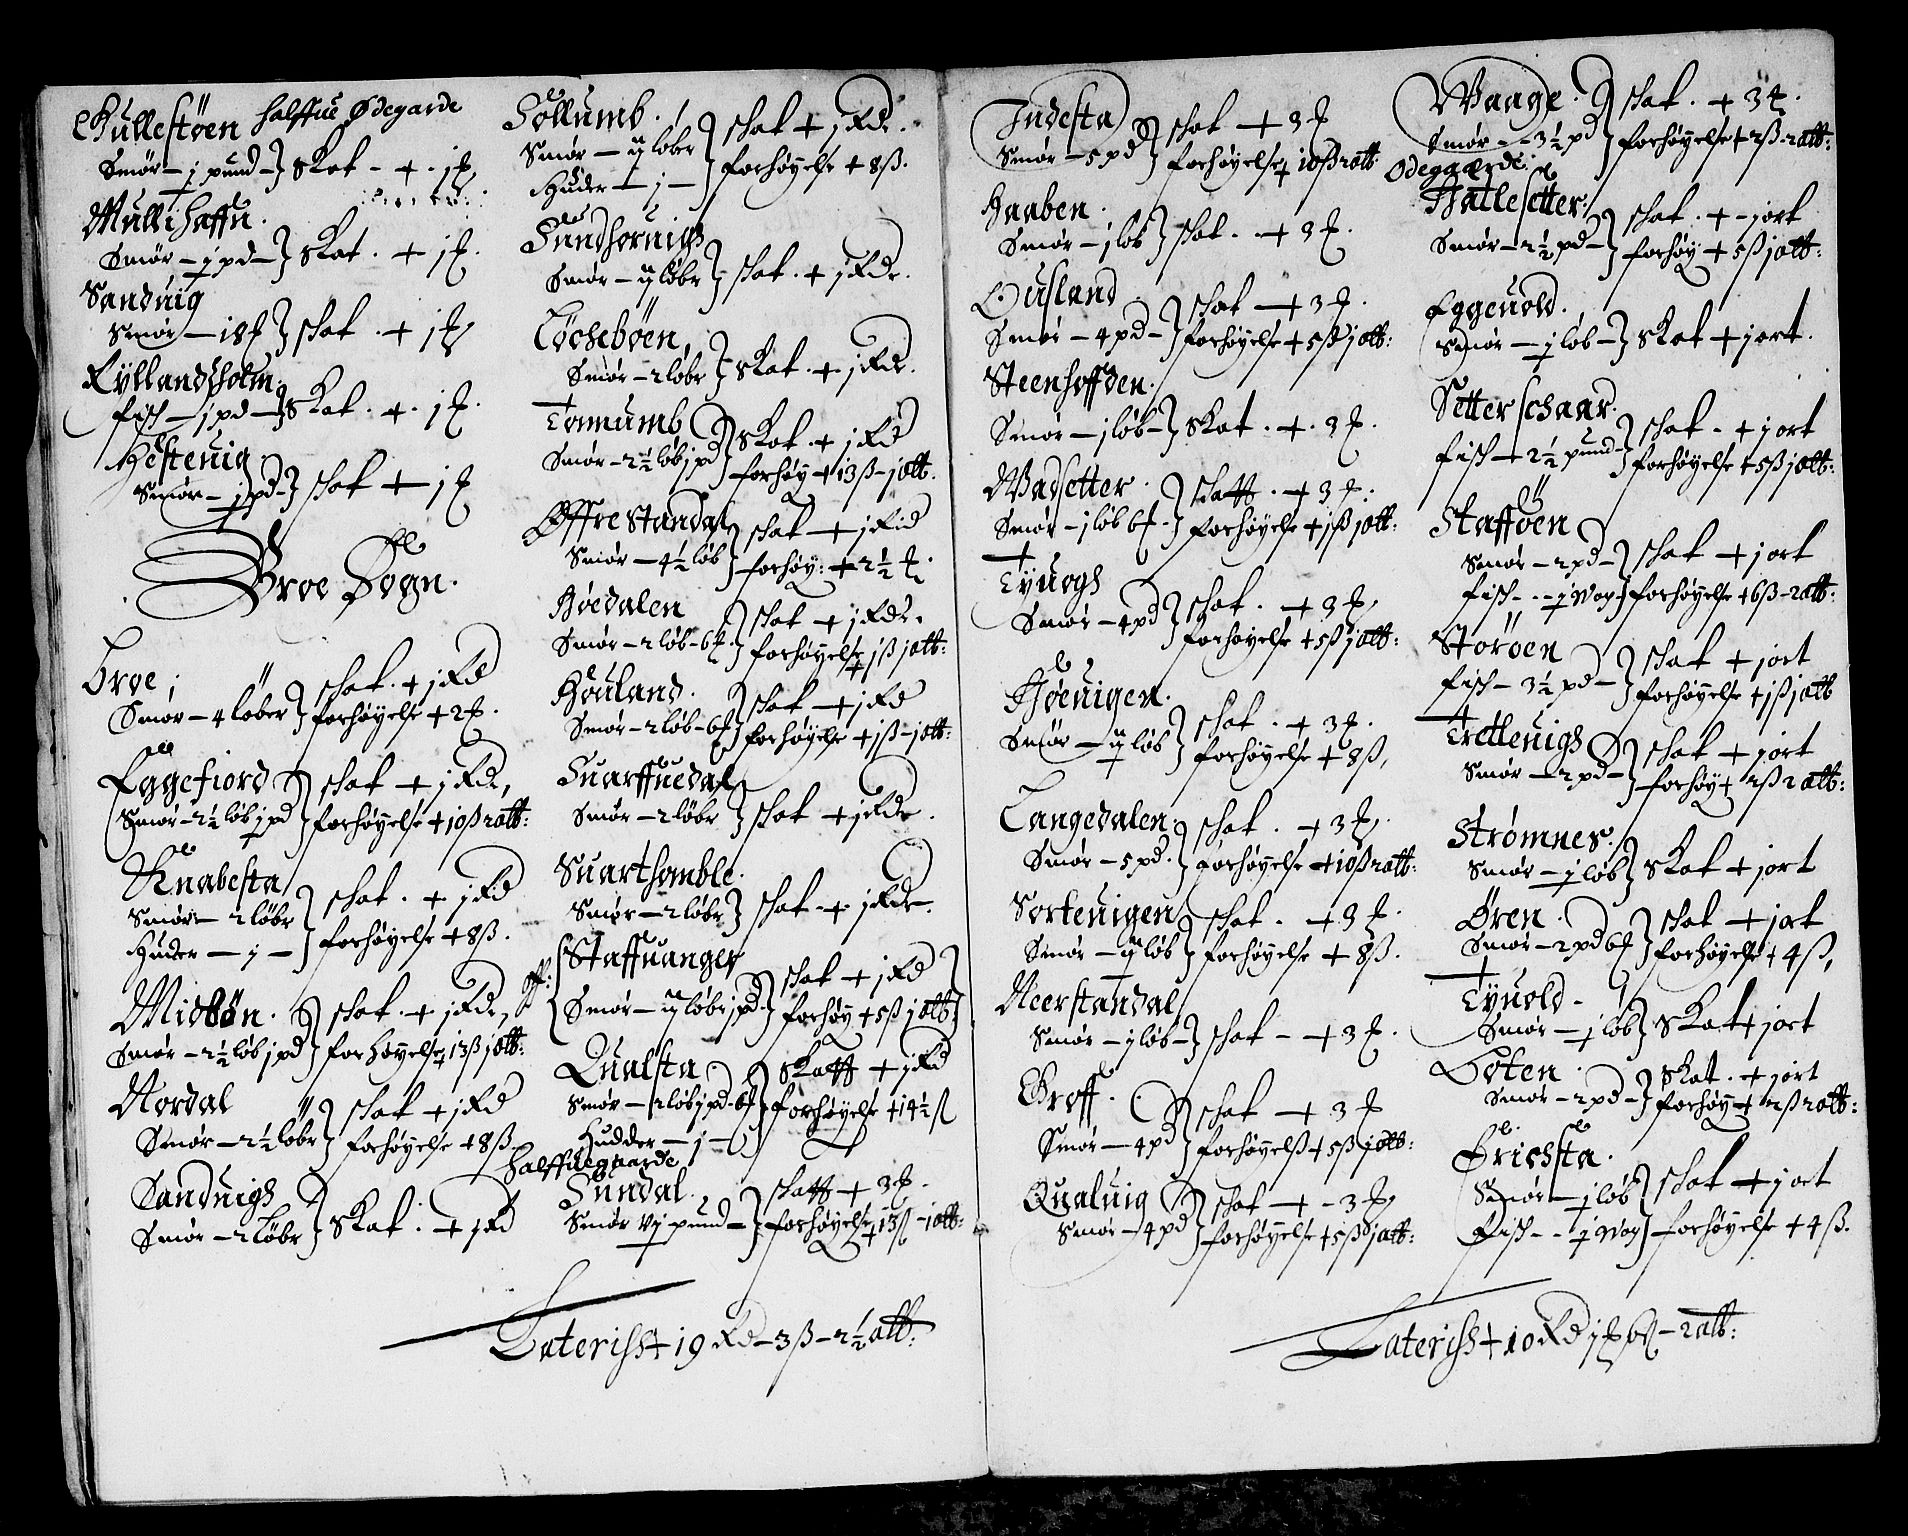 Gullestöen halffue Ødegarde
Smör – j pund – } skat – + . j ₰
Mulli haffn.
Smör – j pd – } skat . + j ₰.
Sanduig
Smör – 18 ₰ } skat . + j ₰
Kyllandsholm.
fisk – j pd – } skat . + . j ₰.
Hesteuig
Smör – j pd – } skat + j ₰
Broe Sogn.
Broe ;
Smör – 4 löber } skat . + j Rd
forhöyelse + 2 ₰.
Eggefiord
Smör – 2½ löb j pd } skat + j Rd,
forhöyelse + 10 ß 2 alb:
Knabesta
Smör – 2 löbr
Huder – j – } skat . + j Rd
forhöyelse + 8 ß.
Midbön.
Smör – 2½ löb j pd } skat . + j Rd,
forhöyelse 13 ß j alb:
Nordal
Smör – 2½ löbr } skat + j Rd
forhöyelse + 8 ß.
Sanduigh
Smör – 2 löbr } skat . + j Rd
Sollumb.
Smör – ij löber
Huder – j – } skat + j Rdr.
forhöyelse + 8 ß.
Sundhornigh
Smör – ij löbr } skat . + j Rdr.
Tocheböen,
Smör – 2 löbr } skat . + j Rdr.
Tomumb
Smör – 2½ löb j pd } skat . + j Rd
forhöy + 13 ß – j alb.
Øffrestandal
Smör – 4½ löb } skat + j Rd
forhöy: + 2½ ₰.
Höedalen
Smör – 2 löb – 6 ₰ } skat + j Rdr.
forhöyelse j ß j alb:
Höuland.
Smör – 2 löb – 6 ₰ } skat + j Rd
forhöyelse + j ß – j alb:
Suarffuedal
Smör – 2 löbr } skat + j Rdr.
Suarthomble.
Smör – 2 löbr } skat . + . j Rdr.
Staffuanger
Smör – ij löbr j pd } skat + j Rd
forhöy + 5 ß j alb
Qualsta
Smör – 2 löb j pd – 6 ₰
Hudder – j – } skatt + j Rd
forhöyelse + 14½ ß
halffuegaarde
Sundal.
Smör vj pund – } skatt + 3 ₰.
forhöyelse 13 ß – j alb:
Laterish + 19 Rd – 3 ß – 2½ alb:
Indesta
Smör – 5 pd } skat + 3 ₰
forhöyelse + 10 ß 2 alb
Haaben.
Smör – j löb } skat . + 3 ₰.
Ousland
Smör – 4 pd – } skat + 3 ₰.
forhöyelse + 5 ß j alb:
Steenhoffden.
Smör – j löb – } skat . + . 3 ₰.
Wadsetter.
Smör – j löb 6 ₰ } skatt . + 3 ₰.
forhöyelse + j ß j alb:
Tyuogh
Smör – 4 pd } skat . + 3 ₰,
forhöyelse + 5 ß j alb:
Höeuigen.
Smör – ij löb } skat . + 3 ₰.
forhöyelse + 8 ß,
Langedalen
Smör – 5 pd. } skat . + 3 ₰,
forhöyelse + 10 ß 2 alb:
Sorteuigen
Smör – ij löb } skat . + 3 ₰.
forhöyelse + 8 ß.
Neerstandal
Smör – j löb – } skat – + 3 ₰.
Groff.
Smör – 4 pd } skat + 3 ₰
forhöyelse + 5 ß j alb:
Qualuig
Smör – 4 pd } skat + – 3 ₰,
forhöyelse + 5 ß j alb:
Waage.
Smör – – 3½ pd } skat . + 3 ₰.
forhöyelse + 2 ß – 2 alb:
Ødegaarde.
Hatlesetter:
Smör – 2½ pd – } skat . + – j ort
forhöy + 5 ß j alb:
Eggeuold.
Smör – j löb – } skat + j ort.
Setterschaar.
fisk – 2½ pund – } skat – + j ort
forhöyelse + 5 ß j alb:
Stafföen
Smör – 2 pd –
fisk – – j wog } skat + j ort
forhöyelse + 6 ß – 2 alb:
Storöen
fisk – 3½ pd – } skat + j ort
forhöyelse + j ß j alb
Trettenigh
Smör – 2 pd – } skat + j ort
forhöy + 2 ß 2 alb:
Strømnes.
Smör – j löb } skat + j ort
Øren.
Smör – 2 pd 6 ₰ } skat + j ort
forhöyelse + 4 ß,
Tyuold –
Smör – j löb } skat + j ort
Boten.
Smör – 2 pd – } skat . + j ort
forhöy + 2 ß 2 alb:
Brichsta.
Smör – j löb
Fisk – – j wog } skat + j ort
forhöyelse + 4 ß.
Laterish + 10 Rd j ₰ 6 ß – 2 alb: